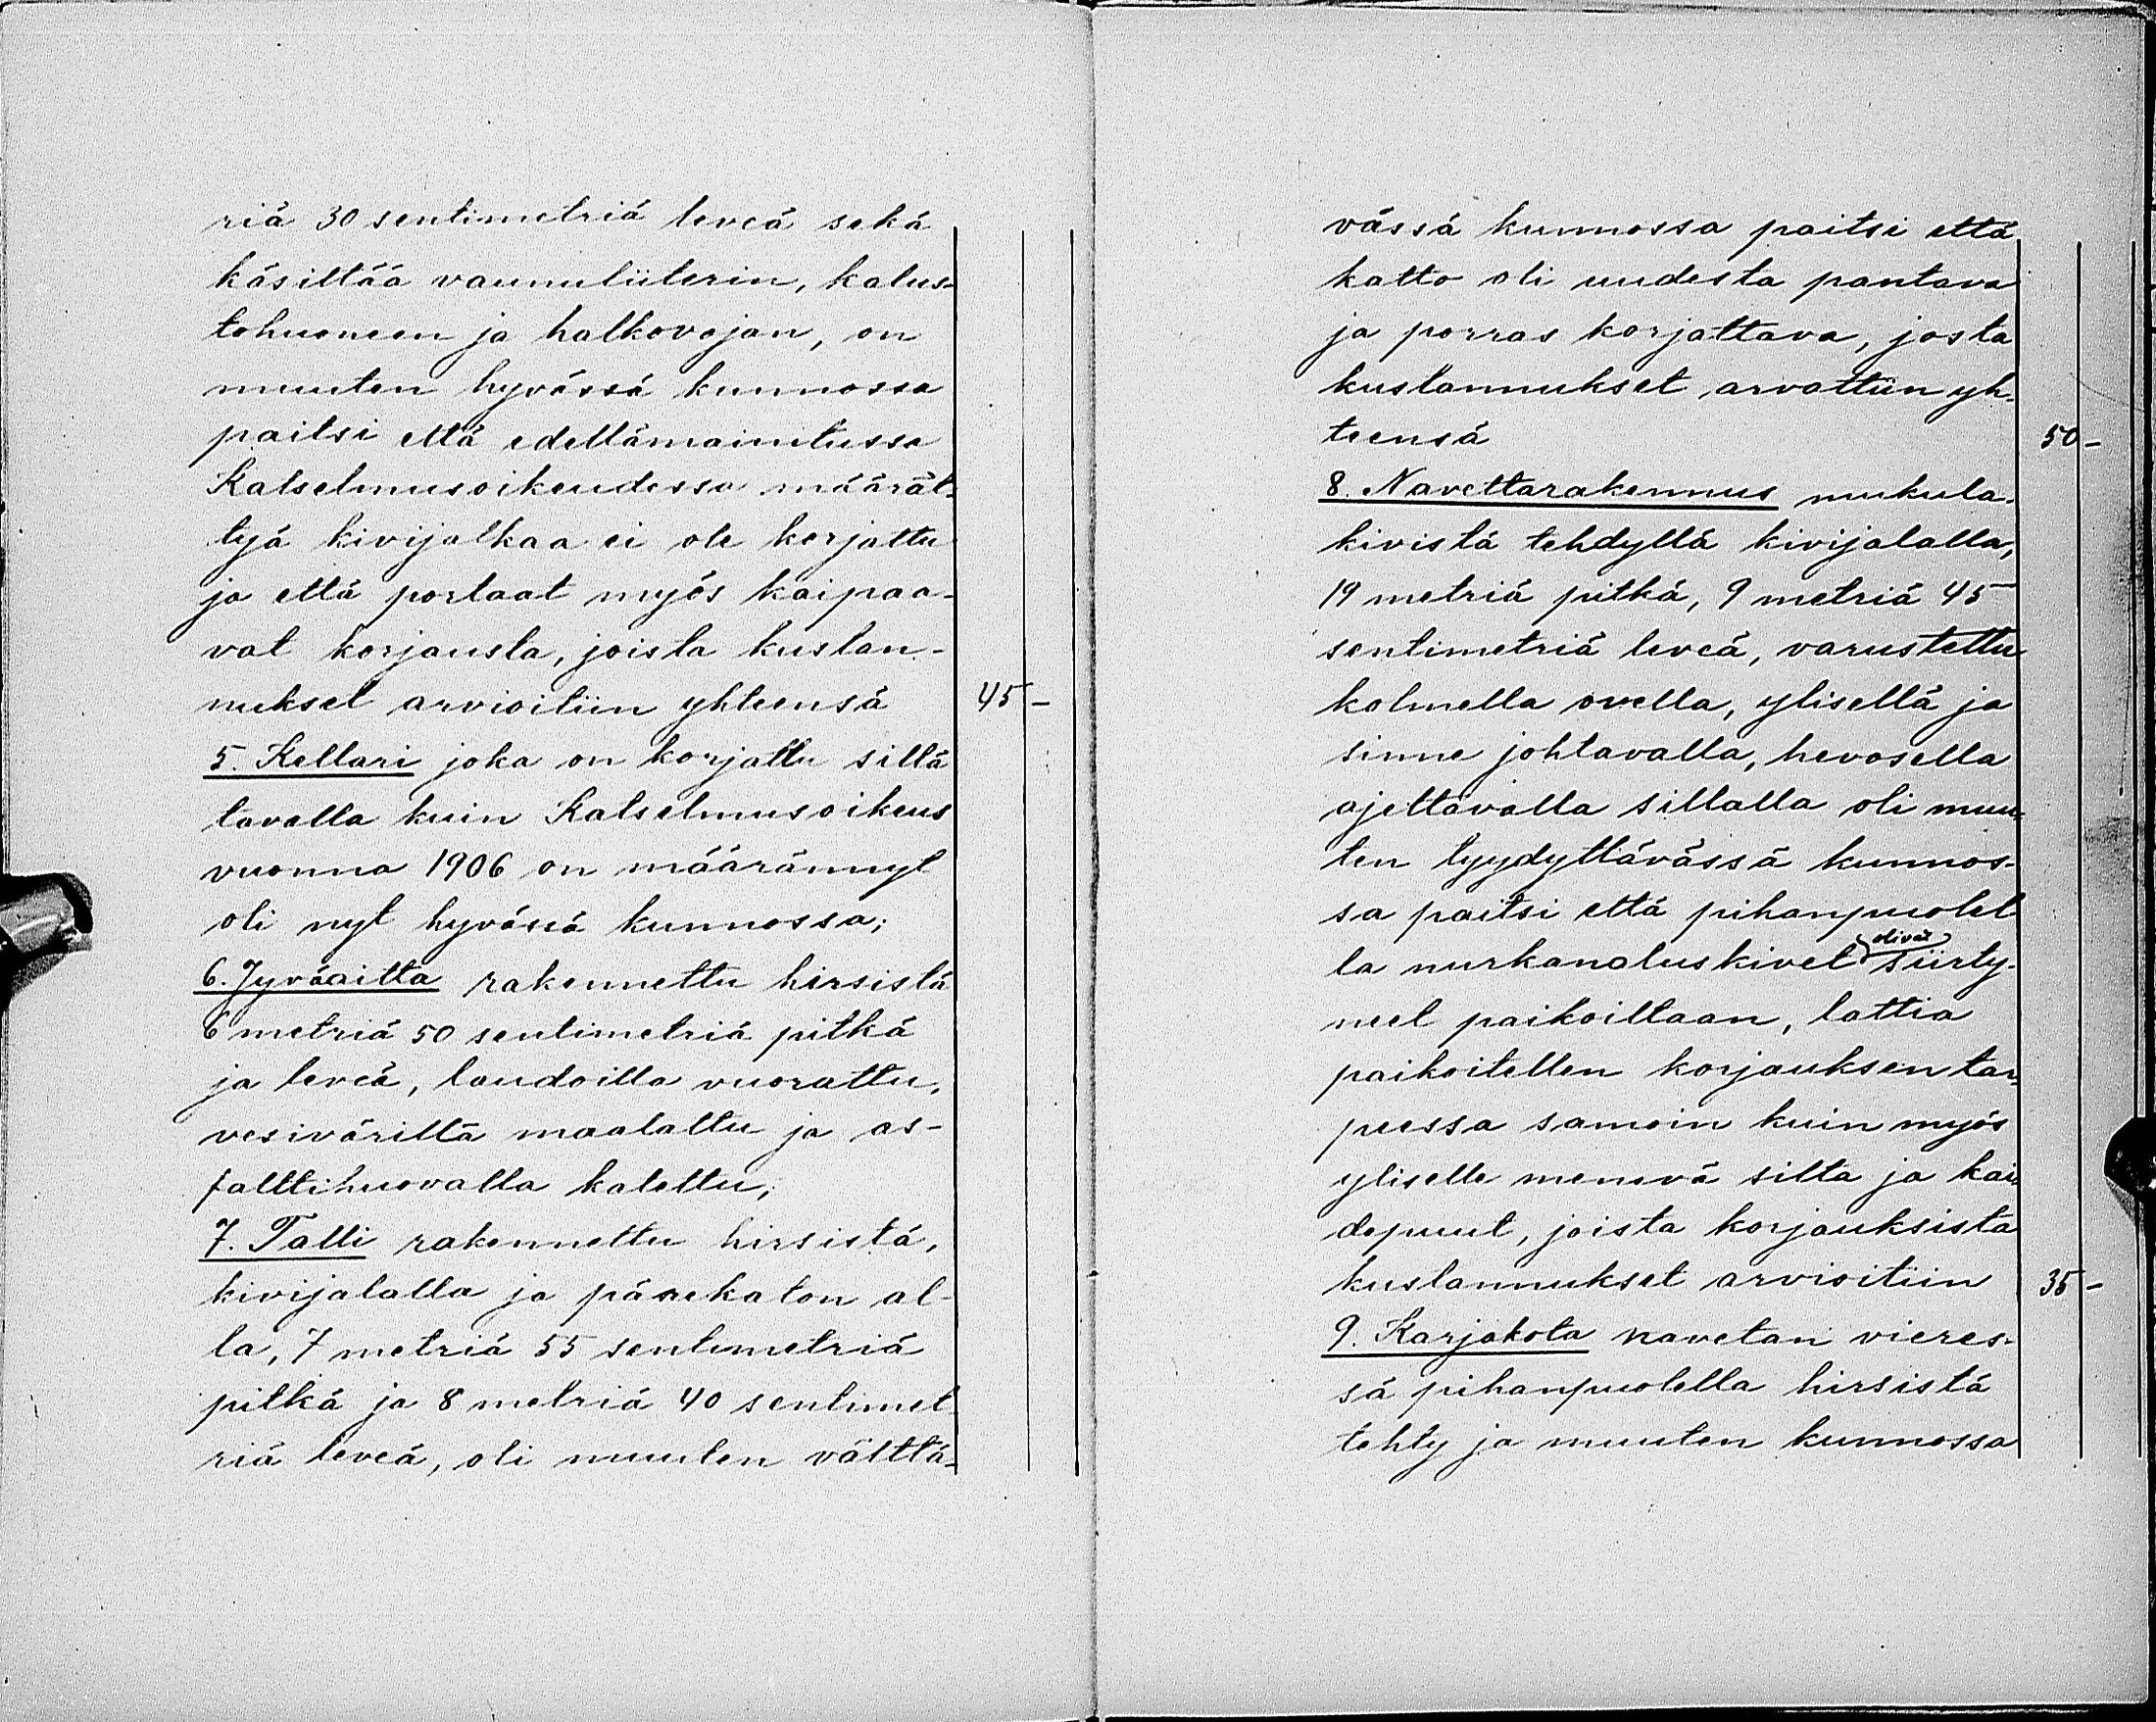 riä 30 sentimetriä leveä sekä
käsittää vaunuliiterin, kalus-
tohuoneen ja halkovajan, on
muuten hyvässä kunnossa
paitsi että edellämainitussa
Katselmusoikeudessa määrät-
tyä kivijalkaa ei ole korjattu
ja että portaat myös kaipaa-
vat korjausta, joista kustan-
nukset arvioitiin yhteensä 45 -
5. Kellari joka on korjattu sillä
tavalla kuin Katselmusoikeus
vuonna 1906 on määrännyt
oli nyt hyvässä kunnossa;
6. Jyväaitta rakennettu hirsistä
6 metriä 50 sentimetriä pitkä
ja leveä, laudoilla vuorattu,
vesivärillä maalattu ja as-
falttihuovalla katettu;
7. Talli rakennettu hirsistä,
kivijalalla ja pärekaton al-
la, 7 metriä 55 sentimetriä
pitkä ja 8 metriä 40 sentimet-
riä leveä, oli muuten välttä-
vässä kunnossa paitsi että
katto oli uudesta pantava
ja porras korjattava, josta
kustannukset arvattiin yh-
teensä 50 -
8. Navettarakennus mukula-
kivistä tehdyllä kivijalalla,
19 metriä pitkä, 9 metriä 45
sentimetriä leveä, varustettu
kolmella ovella, ylisellä ja
sinne johtavalla, hevosella
ajettavalla sillalla oli muu-
ten tyydyttävässä kunnos-
sa paitsi että pihanpuolel
la nurkanaluskivet olivat siirty-
neet paikoiltaan, lattia
paikoitellen korjauksen tar-
peessa samoin kuin myös
yliselle menevä silta ja kai-
depuut, joista korjauksista
kustannukset arvioitiin 35 -
9. Karjakota navetan vieres-
sä pihanpuolella hirsistä
tehty ja muuten kunnossa